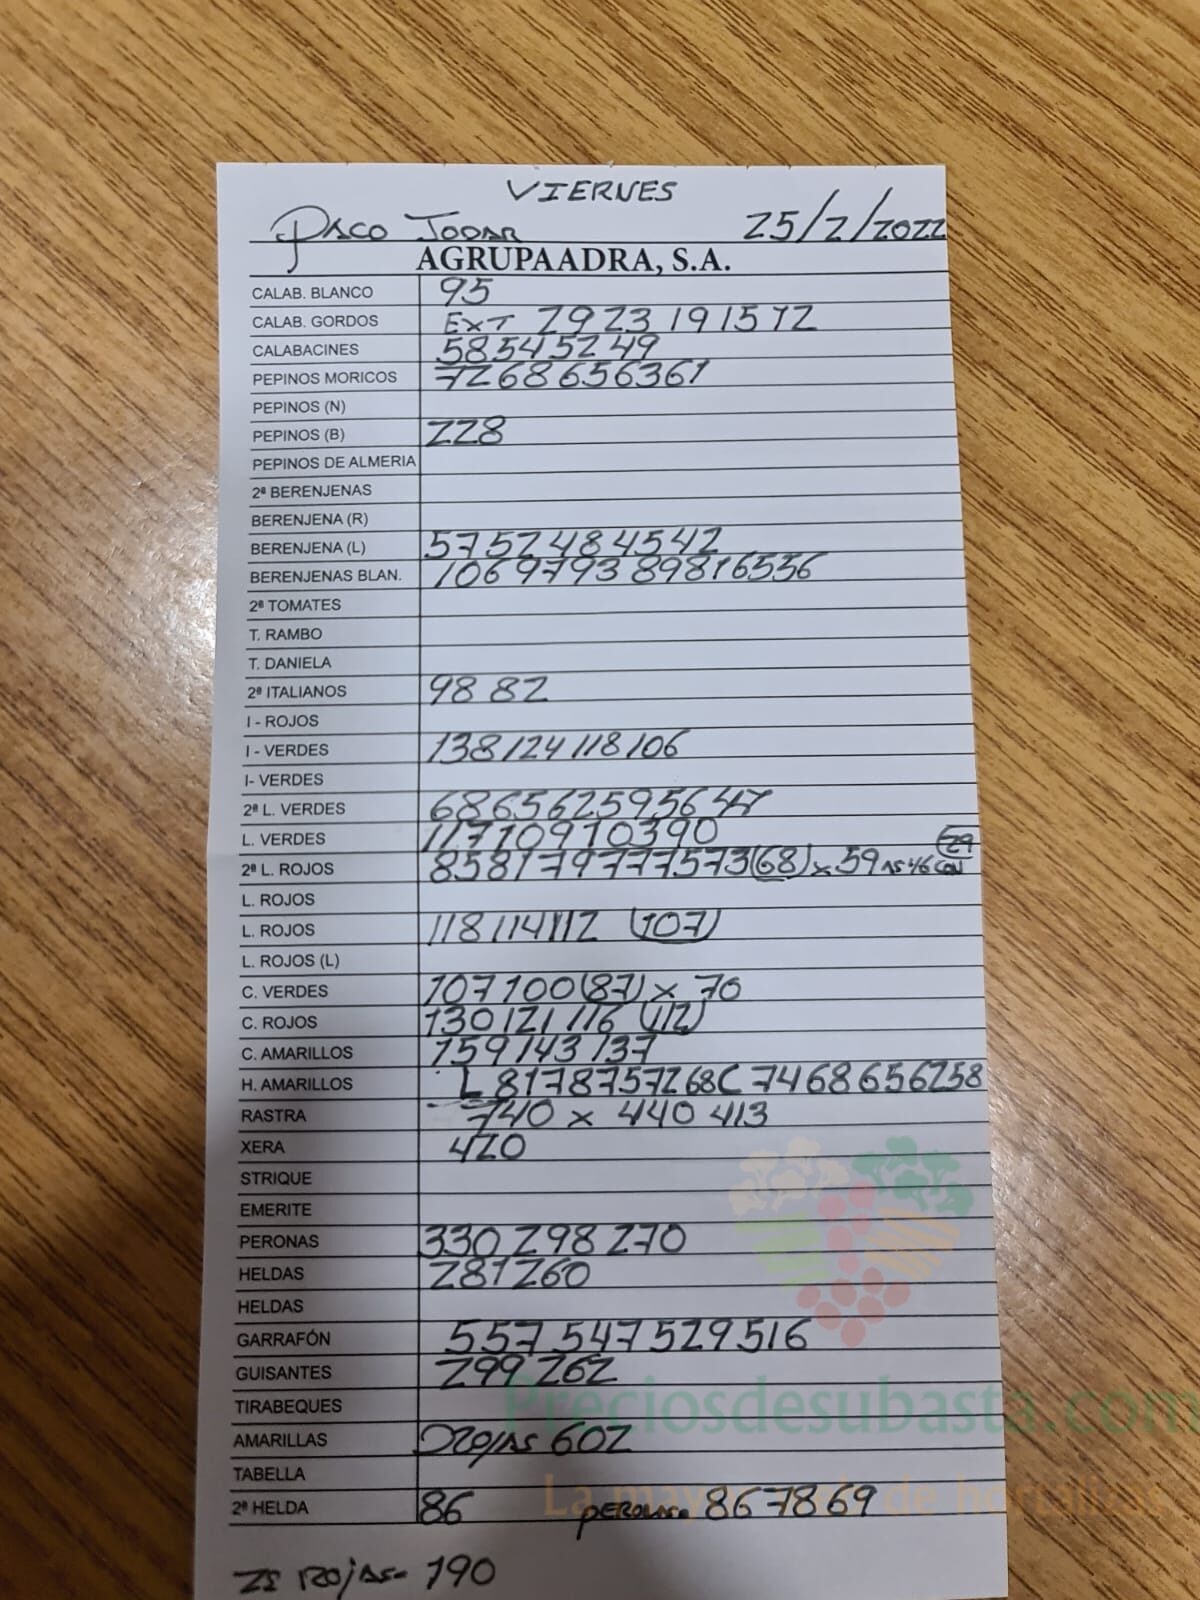 VIERNES
Paco Jodar 25/2/2022
AGRUPAADRA, S.A.
CALAB. BLANCO 95
CALAB. GORDOS EXT 29 23 19 15 12
CALABACINES 58 54 52 49
PEPINOS MORICOS 72 68 65 63 61
PEPINOS (N)
PEPINOS (B) 228
PEPINOS DE ALMERIA
2ª BERENJENAS
BERENJENA (R)
BERENJENA (L) 57 52 48 45 42
BERENJENAS BLAN. 106 97 93 89 81 65 36
2ª TOMATES
T. RAMBO
T. DANIELA
2ª ITALIANOS 98 82
I - ROJOS
I - VERDES 138 124 118 106
I- VERDES
2ª L. VERDES 68 65 62 59 56 47
L. VERDES 117 109 103 90
2ª L. ROJOS 85 81 79 77 75 73 (68) x 59 46 29
L. ROJOS
L. ROJOS 118 114 112 (107)
L. ROJOS (L)
C. VERDES 107 100 (87) x 70
C. ROJOS 130 121 116 (112)
C. AMARILLOS 159 143 137
H. AMARILLOS L 81 78 75 72 68 C 74 68 65 62 58
RASTRA 740 x 440 413
XERA 420
STRIQUE
EMERITE
PERONAS 330 298 270
HELDAS 281 260
HELDAS
GARRAFÓN 557 547 529 516
GUISANTES 299 262
Preciosdesubasta.com
TIRABEQUES
AMARILLAS ROJAS 602
TABELLA
2ª HELDA 86 PERONA 86 78 69
2ª ROJAS- 190